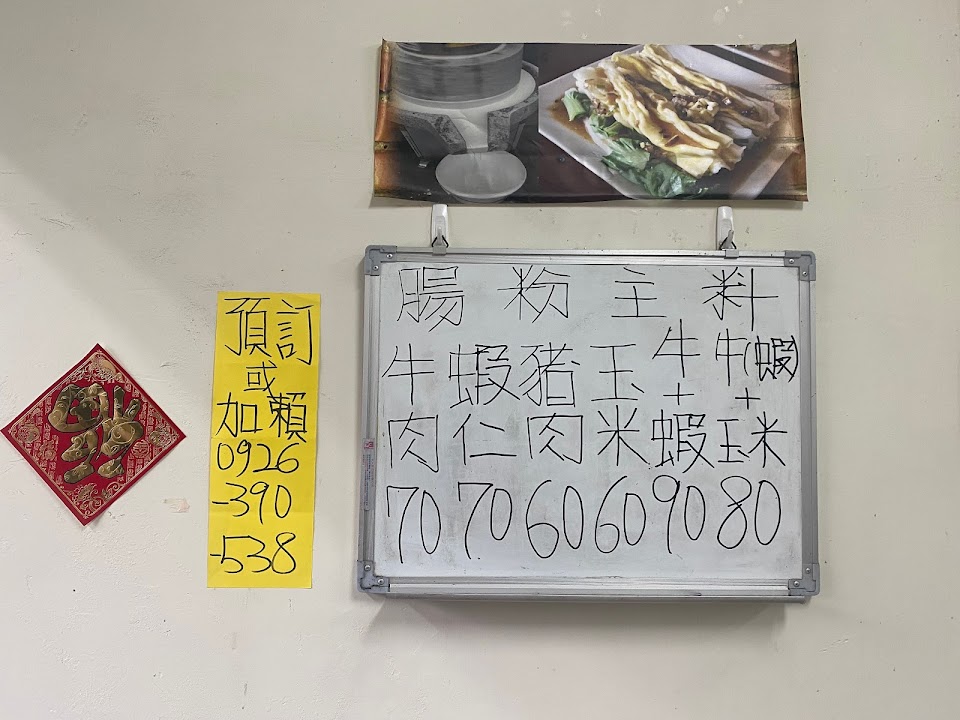 腸粉主料
牛肉 70
蝦仁 70
豬肉 60
玉米 60
牛+蝦 90
牛(蝦)+玉米 80
預訂
或
加賴
0926
-390
-538